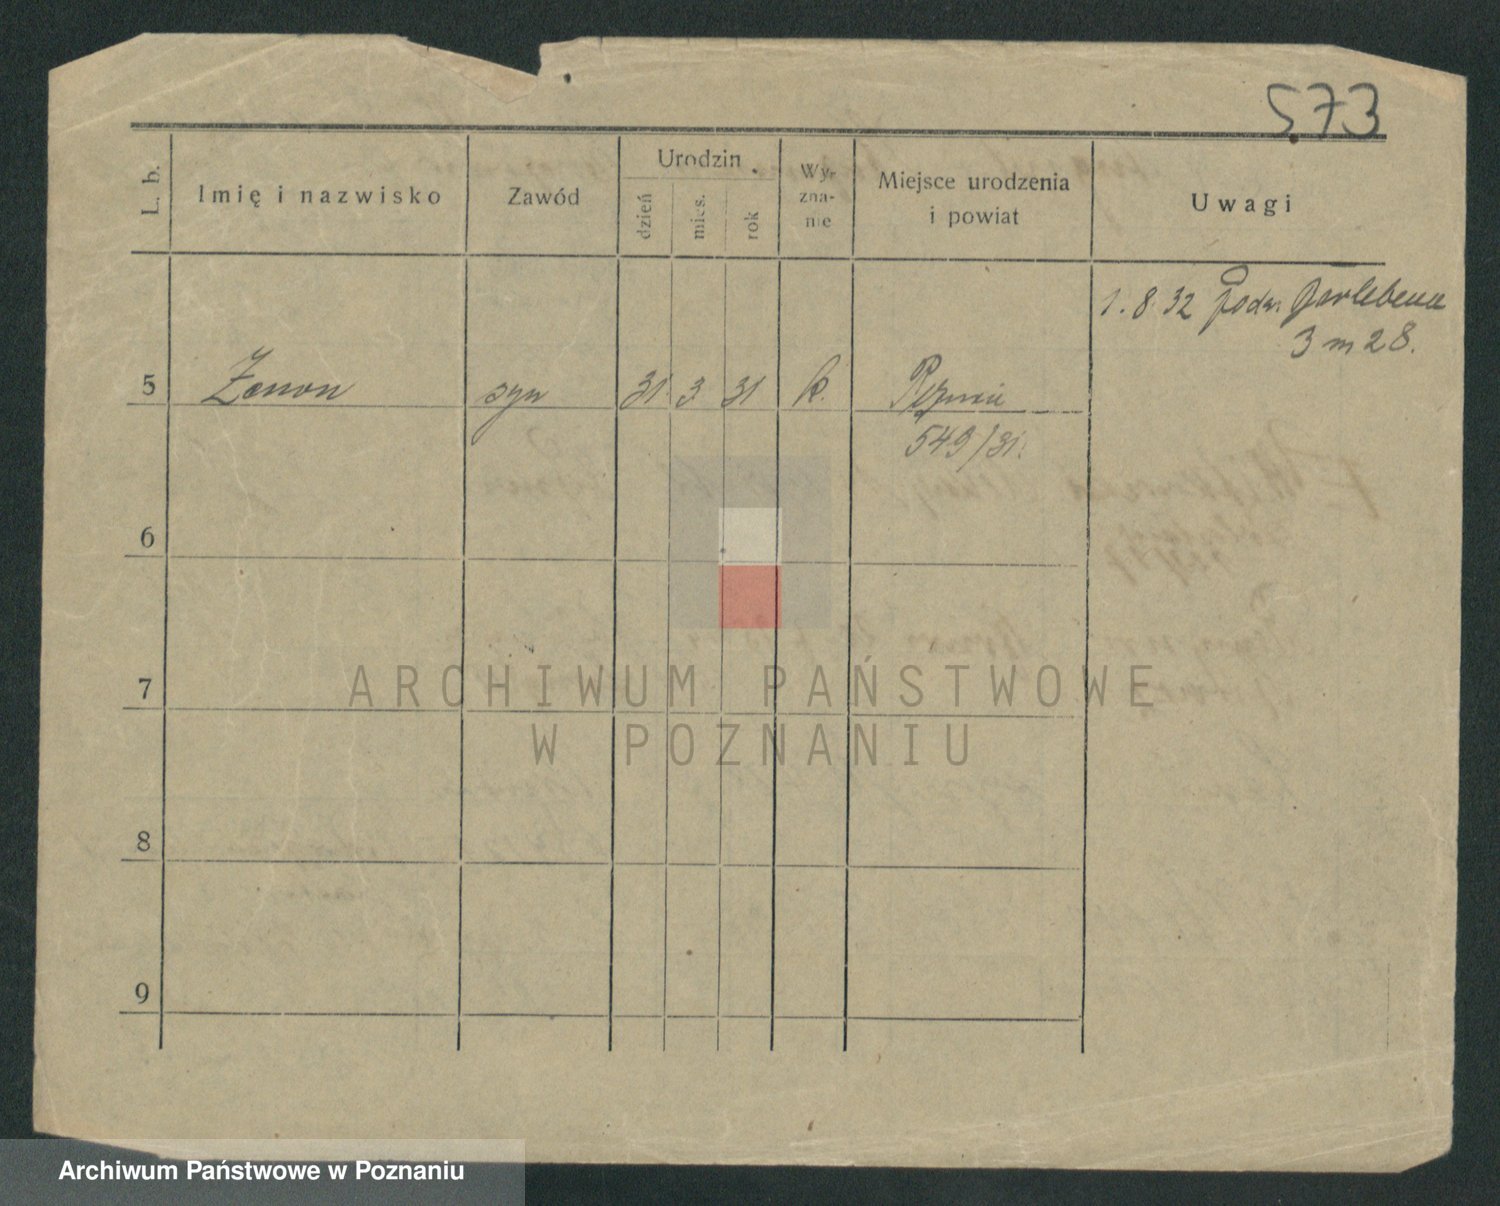 573
L. b.
Imię i nazwisko
Zawód
Urodzin
dzień
mies.
rok
Wy-
zna-
nie
Miejsce urodzenia
i powiat
Uwagi
1. 8. 32
3 m 28.
5 Zenon syn 31 3 31 k.
549/31.
6
7
8
9
ARCHIWUM PAŃSTWOWE
W POZNANIU
Archiwum Państwowe w Poznaniu